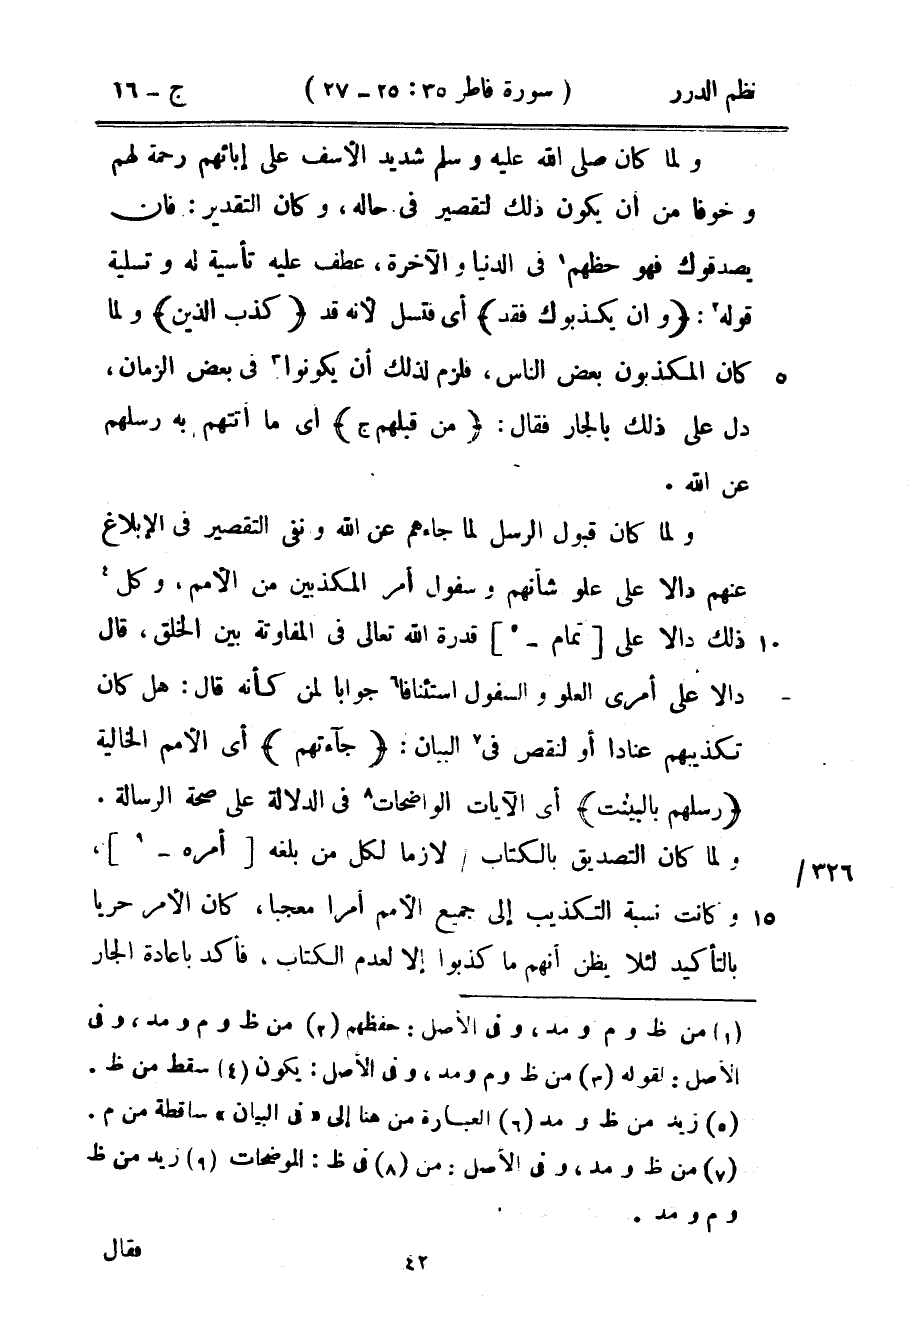 نظم الدرر ( سورة فاطر ٣٥ : ٢٥ – ٢٧ ) ج – ١٦
و لما كان صلى الله عليه و سلم شديد الأسف على إبائهم رحمة لهم
و خوفا من أن يكون ذلك لتقصير فى حاله، و كان التقدير : فان
يصدقوك فهو حظهم١ فى الدنيا و الآخرة، عطف عليه تأسية له و تسلية
قوله٢ : ﴿ و ان يكذبوك فقد ﴾ أى فتسل لأنه قد ﴿ كذب الذين ﴾ و لما
٥ كان المكذبون بعض الناس، فلزم لذلك أن يكونوا٣ فى بعض الزمان،
دل على ذلك بالجار فقال : ﴿ من قبلهم ج ﴾ أى ما أتتهم به رسلهم
عن الله .
و لما كان قبول الرسل لما جاءهم عن الله و نفى التقصير فى الإبلاغ
عنهم دالا على علو شأنهم و سفول أمر المكذبين من الأمم، و كل٤
١٠ ذلك دالا على [ تمام – ٥ ] قدرة الله تعالى فى المفاوتة بين الخلق، قال
دالا على أمرى العلو و السفول استئنافا٦ جوابا لمن كأنه قال : هل كان
تكذيبهم عنادا أو لنقص فى٧ البيان : ﴿ جآءتهم ﴾ أى الأمم الخالية
﴿ رسلهم بالبينٰت ﴾ أى الآيات الواضحات٨ فى الدلالة على صحة الرسالة .
و لما كان التصديق بالكتاب / لازما لكل من بلغه [ أمره – ٩ ]، /٣٢٦
١٥ و كانت نسبة التكذيب إلى جميع الأمم أمرا معجبا، كان الأمر حريا
بالتأكيد لئلا يظن أنهم ما كذبوا إلا لعدم الكتاب، فأكد باعادة الجار
(١) من ظ و م و مد، و فى الأصل : حفظهم (٢) من ظ و م و مد، و فى
الأصل : لقوله (٣) من ظ و م ومد، و فى الأصل : يكون (٤) سقط من ظ .
(٥) زيد من ظ و مد (٦) العبارة من هنا إلى « فى البيان » ساقطة من م .
(٧) من ظ و مد، و فى الأصل : من (٨) فى ظ : الموضحات (٩) زيد من ظ
و م و مد .
٤٢ فقال